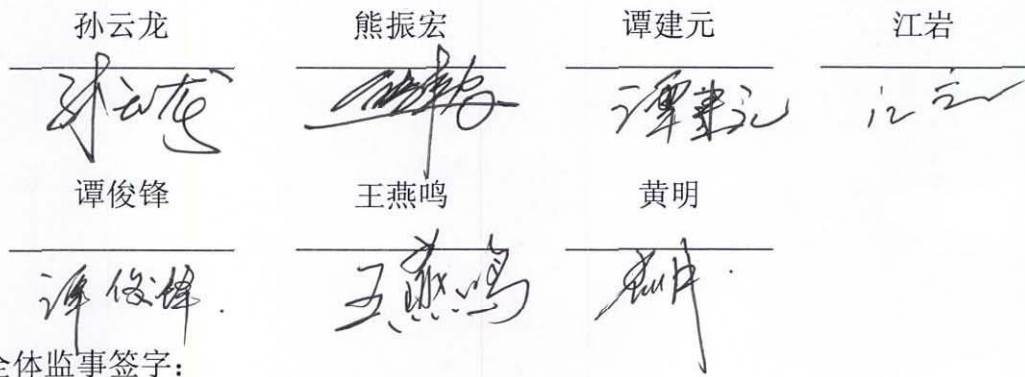 孙云龙 熊振宏 谭建元 江岩
孙云龙 谭建元 江岩
谭俊锋 王燕鸣 黄明
谭俊锋 王燕鸣
全体监事签字：